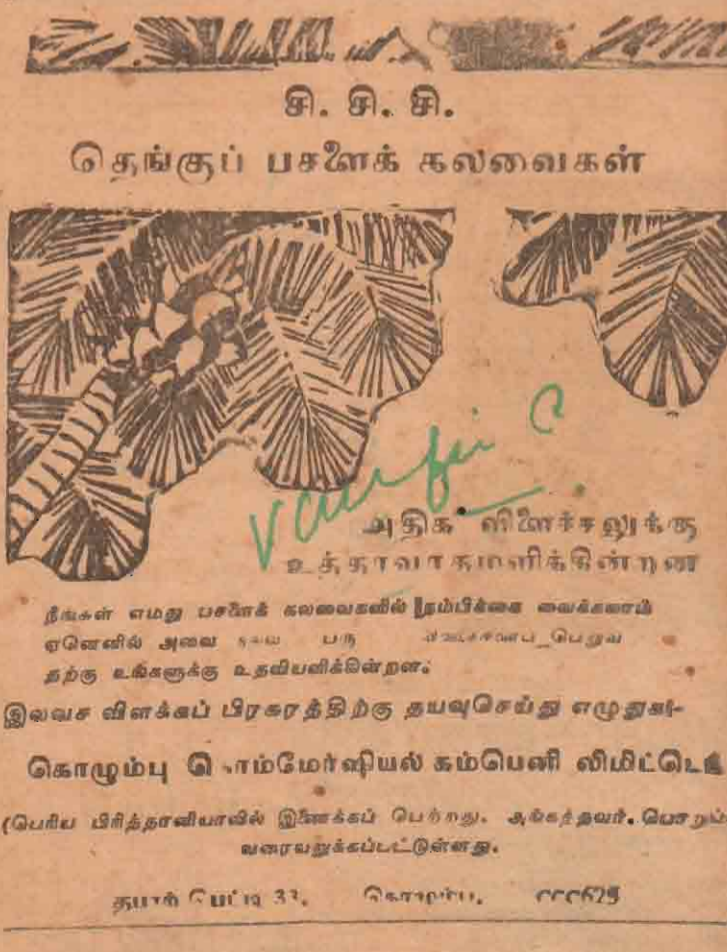 சி. சி. சி.
தெங்குப் பசளைக் கலவைகள்
அதிக விளைச்சலுக்கு
உத்தரவாதமளிக்கின்றன
நீங்கள் எமது பசளைக் கலவைகளில் நம்பிக்கை வைக்கலாம்
ஏனெனில் அவை பெறுவ
தற்கு உங்களுக்கு உதவியளிக்கின்றன.
இலவச விளக்கப் பிரசுரத்திற்கு தயவுசெய்து எழுதுக:-
கொழும்பு கொம்மேர்ஷியல் கம்பெனி லிமிட்டெட்
(பெரிய பிரித்தானியாவில் இணைக்கப் பெற்றது. அங்கத்தவர். பொறுப்
வரையறுக்கப்பட்டுள்ளது.
தபாற் பெட்டி 33, கொழும்பு. CCC625